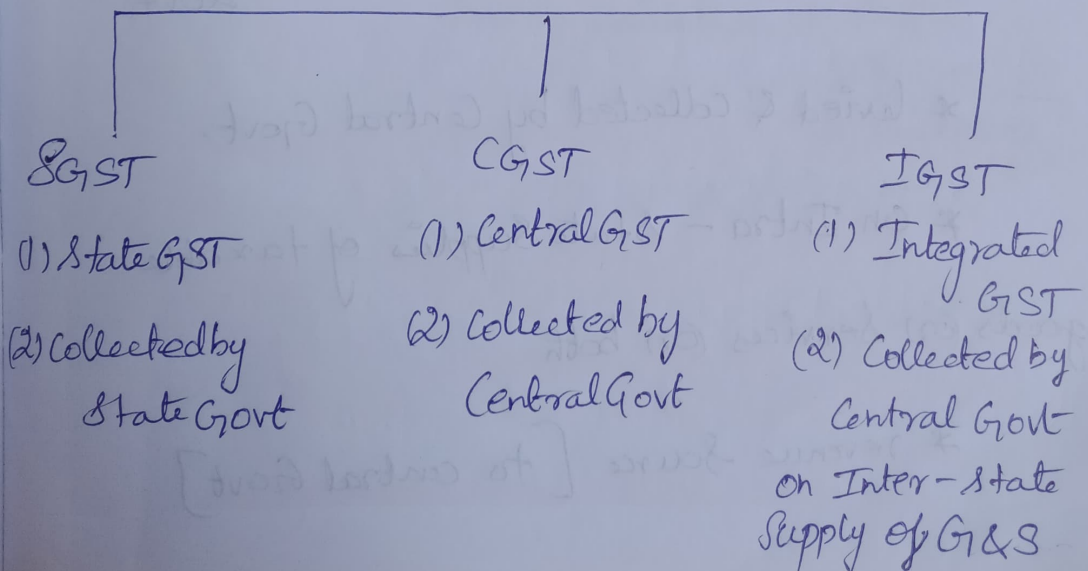 SGST
(1) State GST
(2) Collected by
State Govt
CGST
(1) Central GST
(2) Collected by
Central Govt
IGST
(1) Integrated
GST
(2) Collected by
Central Govt
on Inter-State
Supply of G&S